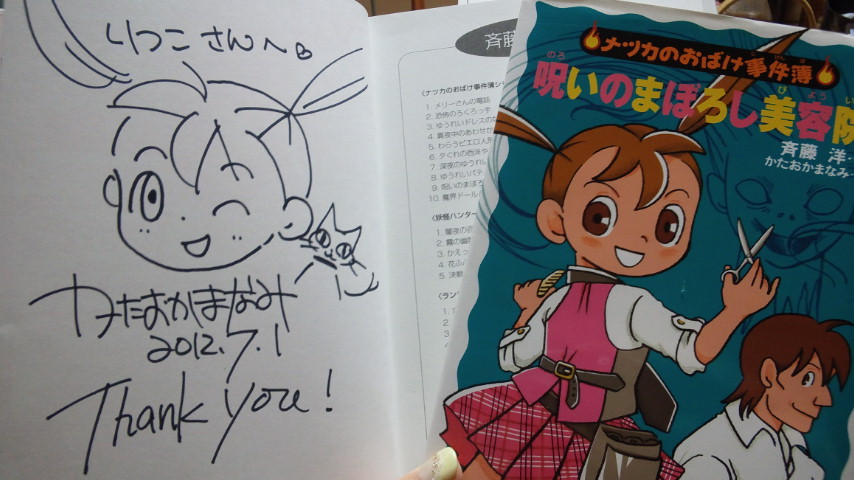 りつこさんへ
かたおかまなみ
2012.7.1
Thank you!
斉藤
〈ナツカのおばけ事件簿シ
1. メリーさんの電話
2. 恐怖のろくろっ手
3. ゆうれいドレスの
4. 真夜中のあわせか
5. わらうピエロ人
6. 夕ぐれの
7. 深夜のゆうれい
8. ゆうれいパテ
9. 呪いのまぼろ
10. 魔界ドール
〈妖怪ハンター
1. 闇夜の
2. 霧の幽
3. かえっ
4. 花ふ
5. 決戦
〈ラン
ナツカのおばけ事件簿
呪いのまぼろし美容院
斉藤 洋・
かたおかまなみ